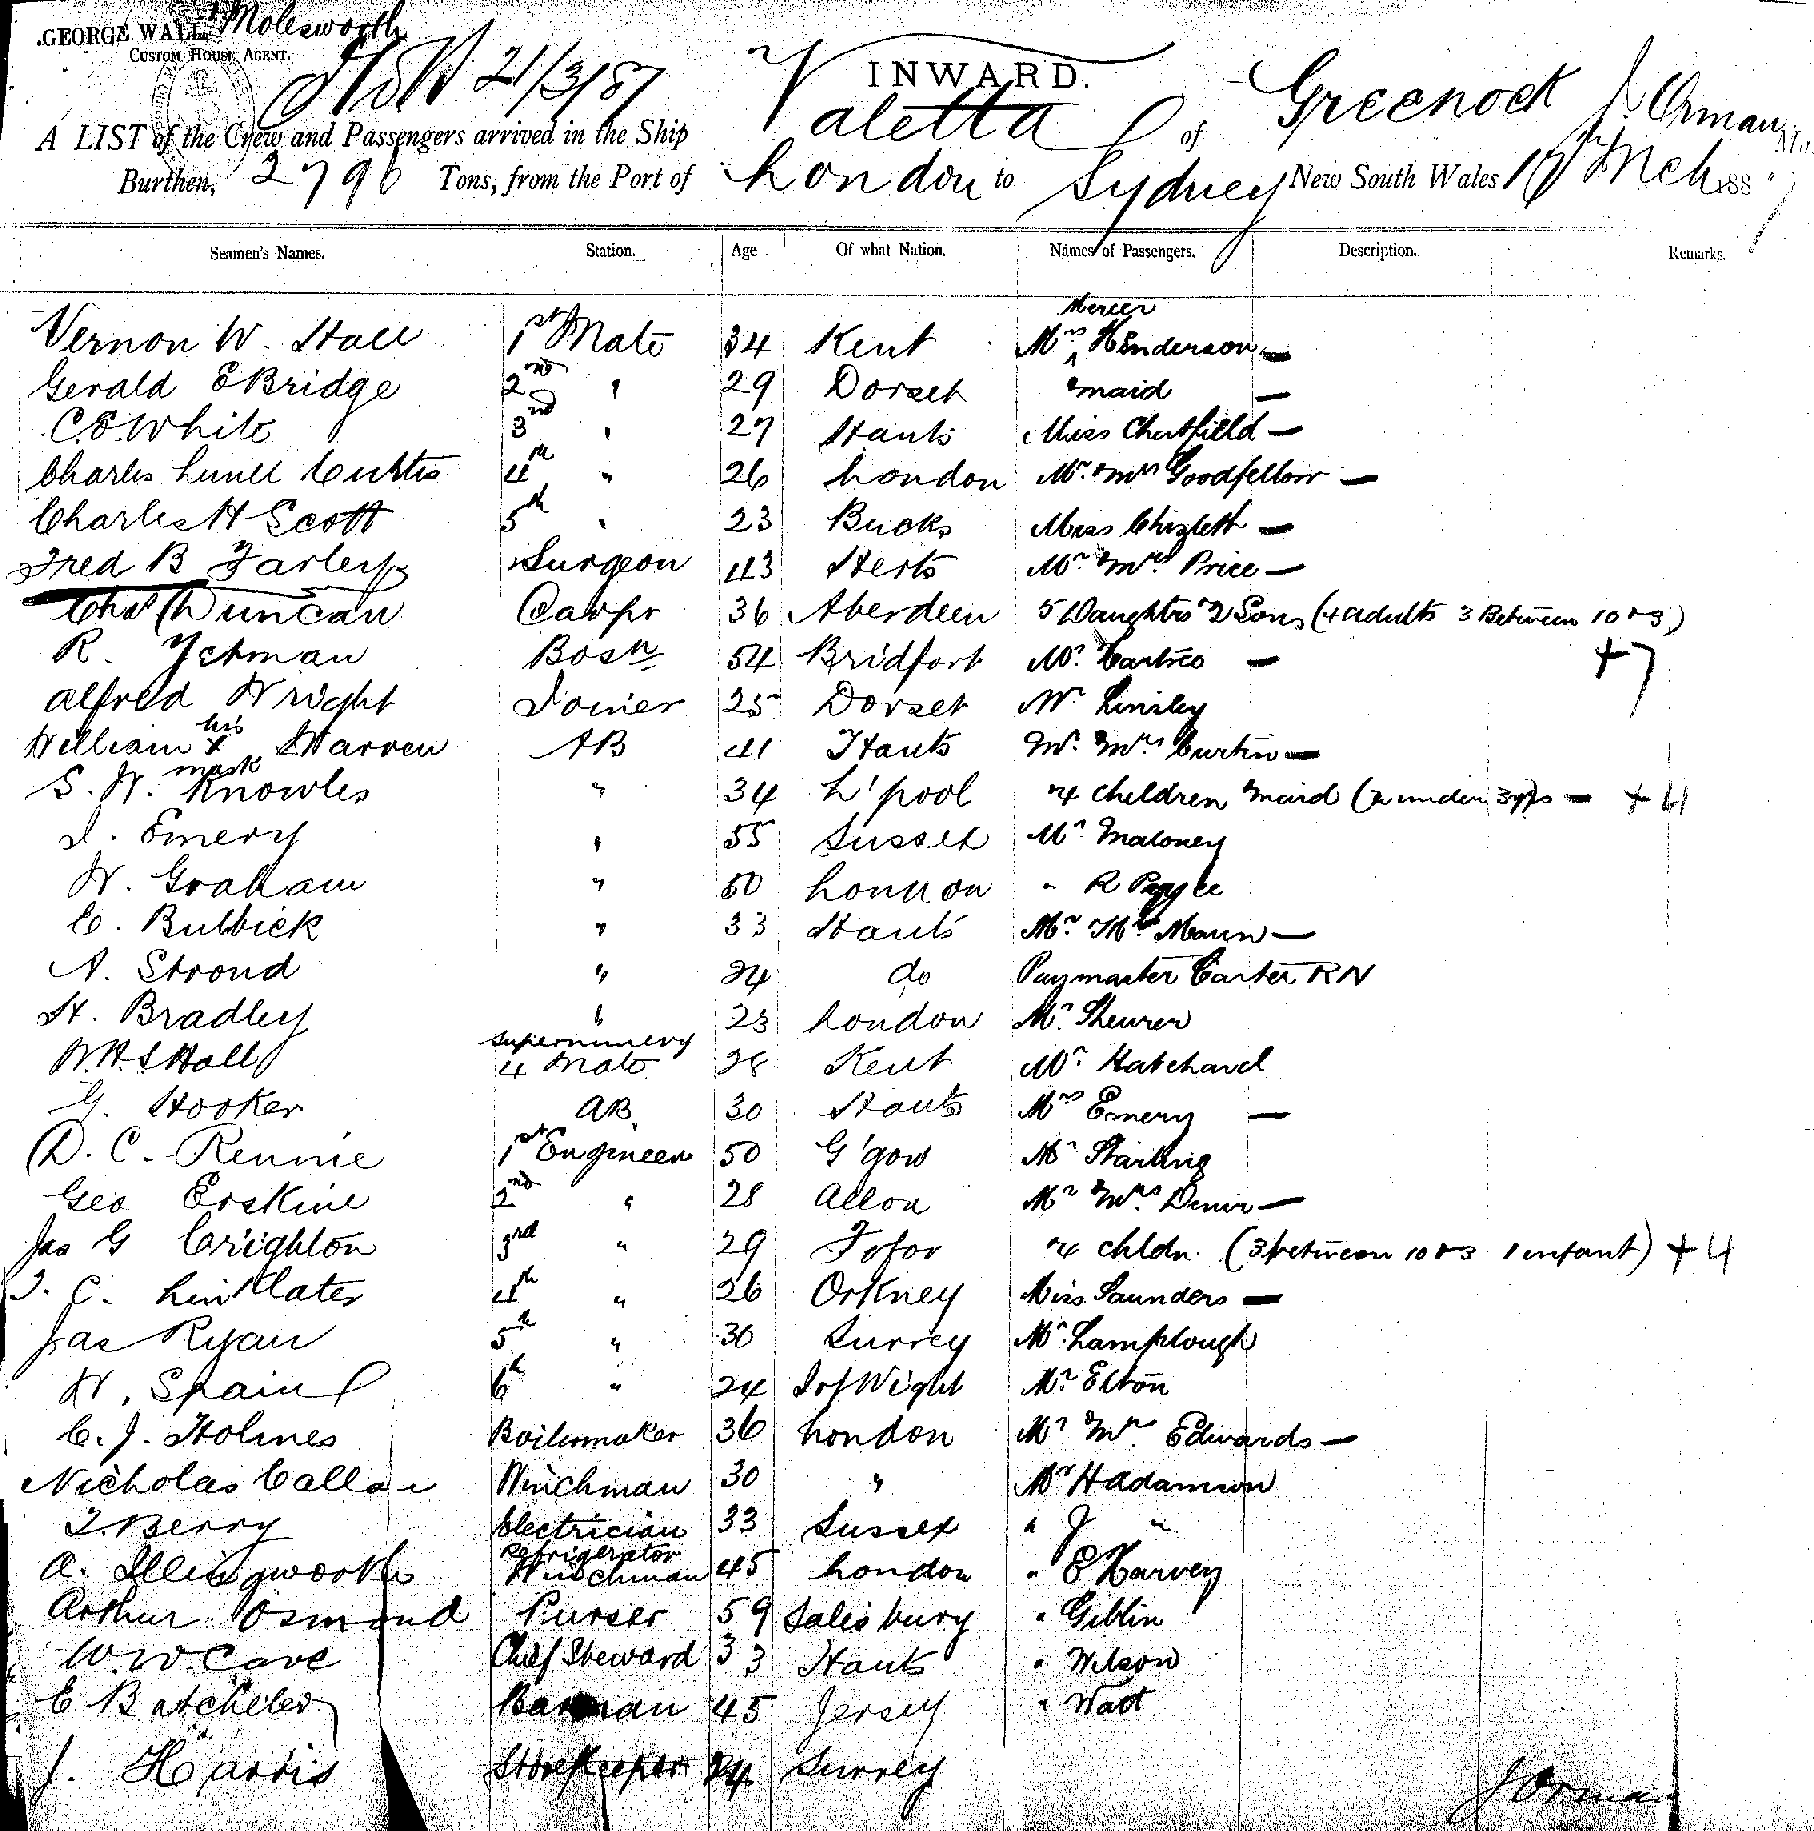 GEORGE WALL Molesworth
CUSTOM HOUSE AGENT.
21/3/87
INWARD.
A LIST of the Crew and Passengers arrived in the Ship Valetta of Greenock J Orman
Burthen, 2796 Tons, from the Port of London to Sydney New South Wales 18 Mch 1887
Seamen's Names. Station. Age Of what Nation. Names of Passengers. Description. Remarks.
Mercer
Vernon W. Hall 1st Mate 34 Kent Mrs Henderson —
Gerald E Bridge 2nd " 29 Dorset & maid —
C.E. White 3rd " 27 Hants Miss Chatfield —
Charles Lunell Curtis 4th " 26 London Mr & Mrs Goodfellow —
Charles H Scott 5th " 23 Bucks Miss —
Fred B Farley Surgeon 43 Herts Mr & Mrs Price —
Chas Duncan Carpr 36 Aberdeen 5 Daughtrs 2 Sons (4 adults 3 Between 10 & 3)
R. Yetman Bosn 54 Bridport Mr —  + 7
Alfred Wright Joiner 25 Dorset Mr Linsley
his
William x Warren AB 41 Hants Mr & Mrs Curtin —
mark
S. W. Knowles " 34 L'pool & 4 children & maid (2 under 3 yrs — + 4
J. Emery " 55 Sussex Mr Maloney
W. Graham " 50 London " R
C. Bulbick " 33 Hants Mr & Mrs Mann —
A. Stroud " 24 do Paymaster Carter RN
H. Bradley " 23 London Mr Sheurer
supernumery
W.H.S Hall 4 Mate 28 Kent Mr Hatchard
G. Hooker AB 30 Hants Mrs Emery —
D. C. Rennie 1st Engineer 50 G'gow Mr Starling
Geo Erskine 2nd " 28 Alloa Mr & Mrs —
Jas G Crighton 3rd " 29 Fofar & 4 chldn. (3 between 10 & 3 1 infant) + 4
J. C. Linklater 4th " 26 Orkney Miss Saunders —
Jas Ryan 5th " 30 Surrey Mr Lamplough
W. Spain 6th " 24 I of Wight Mr Elton
C. J. Holmes Boilermaker 36 London Mr & Mrs Edwards —
Nicholas Callan Winchman 30 " Mr H Adamson
J. Berry Electrician 33 Sussex " J "
Refrigerator
A. Illingworth Winchman 45 London " E Harvey
Arthur Osmond Purser 59 Salisbury " Giblin
W. W. Cave Chief Steward 33 Hants " Wilson
E Batcheler Barman 45 Jersey " Watt
J. Harris Storekeeper 24 Surrey
J Orman